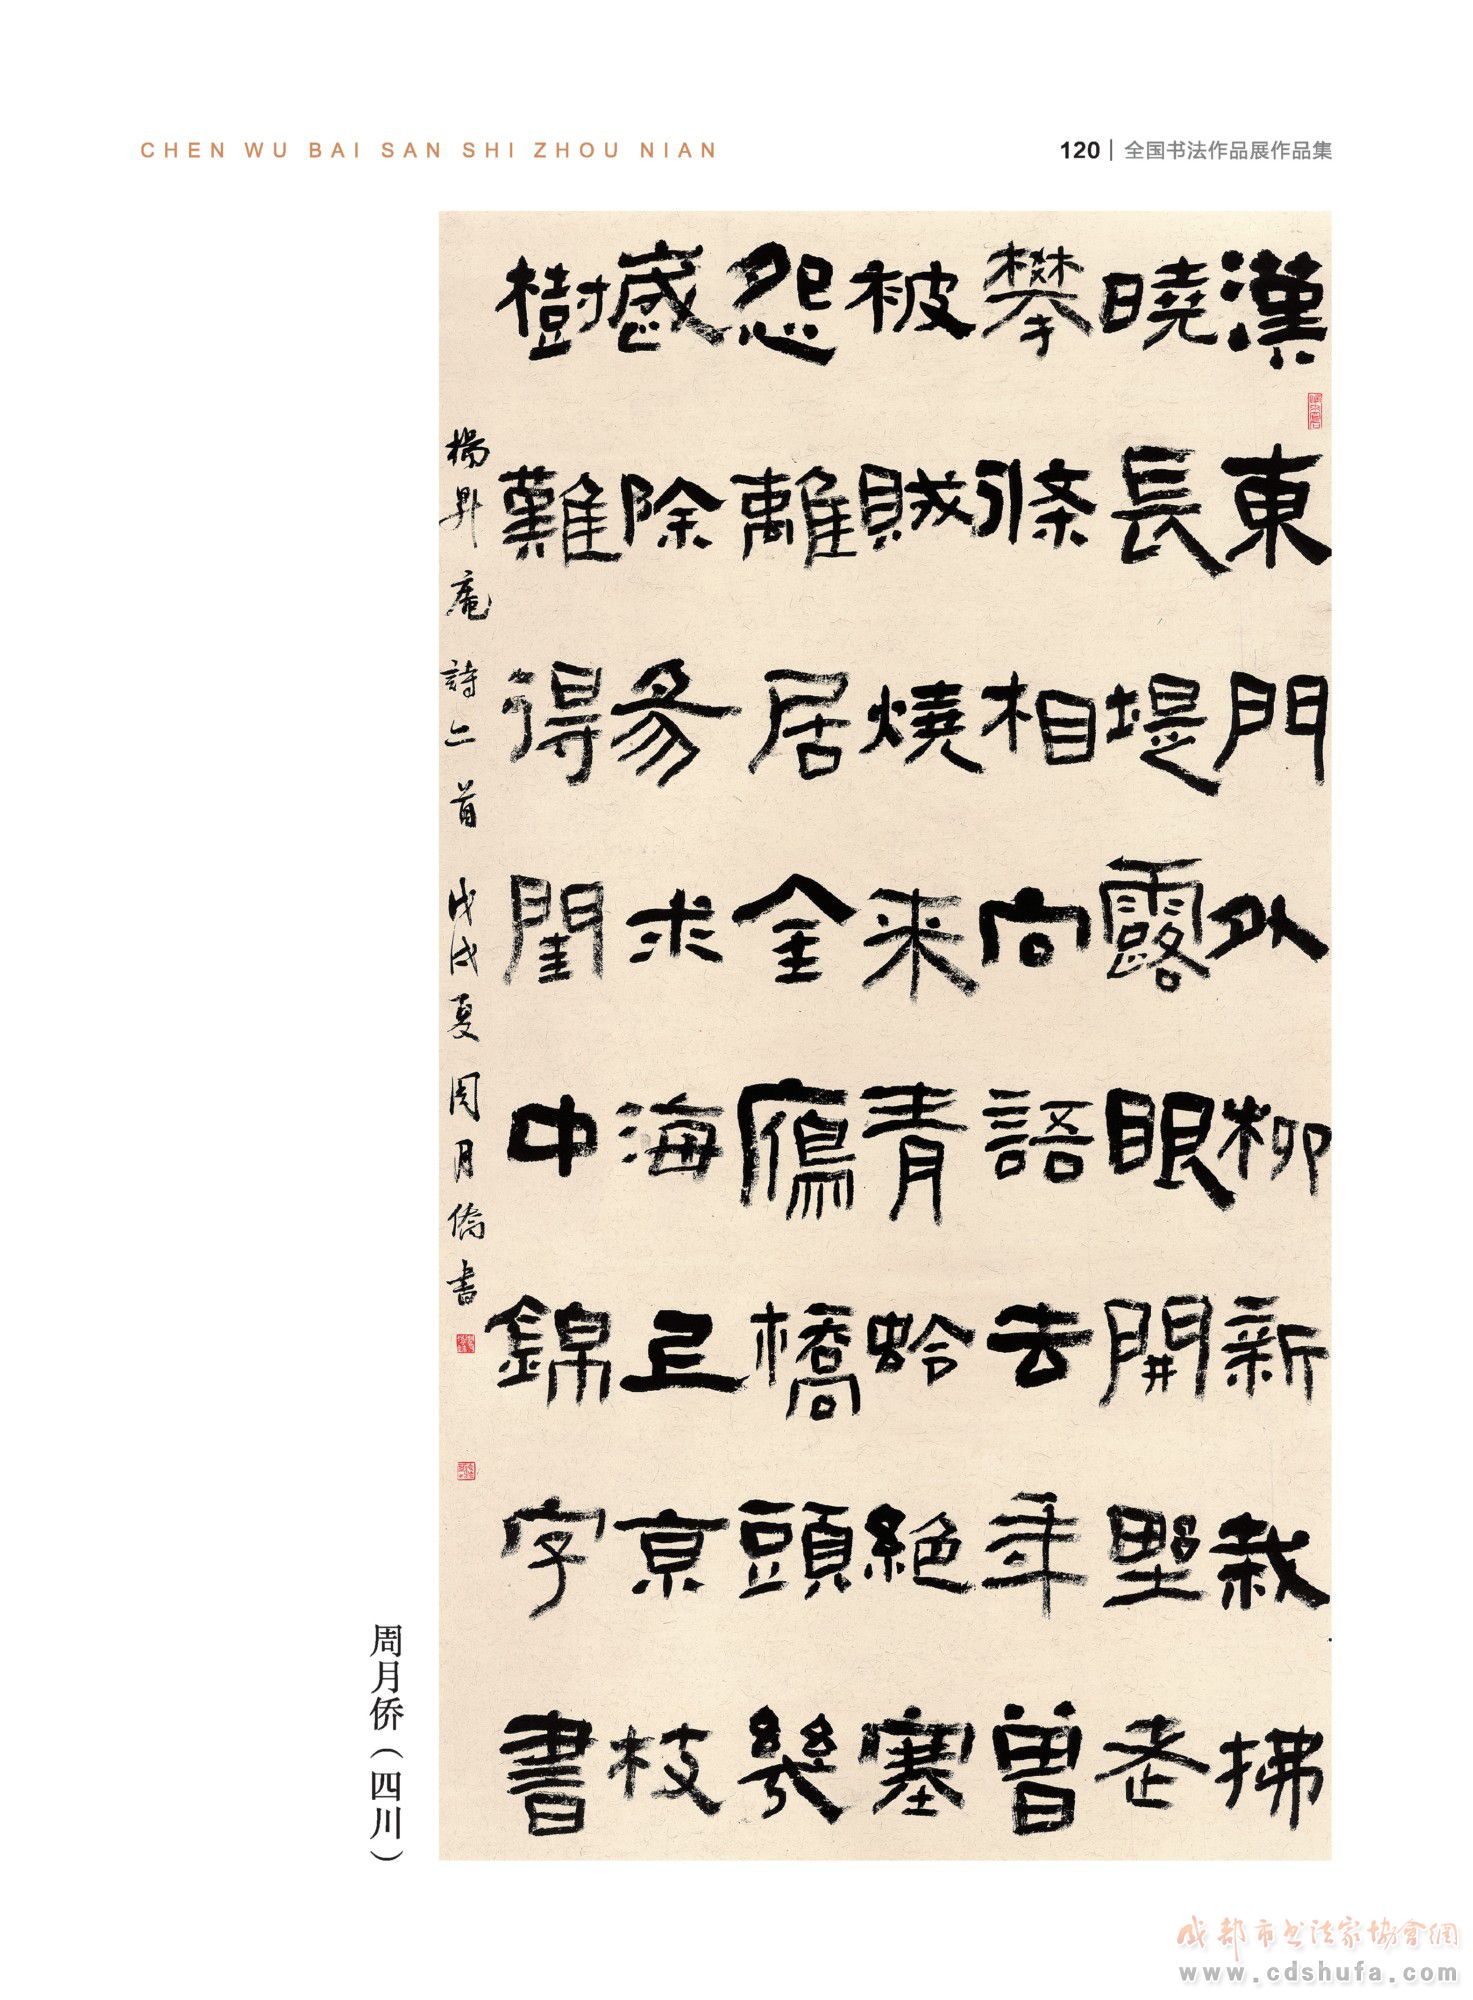 CHEN WU BAI SAN SHI ZHOU NIAN
120 | 全国书法作品展作品集
漢東門外柳新栽拂
曉長堤露眼開野老
攀條相向語去年曾
被賊燒来青蛤絕塞
怨離居金鴈橋頭幾
感除夛求海上京枝
樹難得閨中錦字書
楊升庵詩二首 戊戌夏周月僑書
周月侨（四川）
成都市书法家協會網
www.cdshufa.com